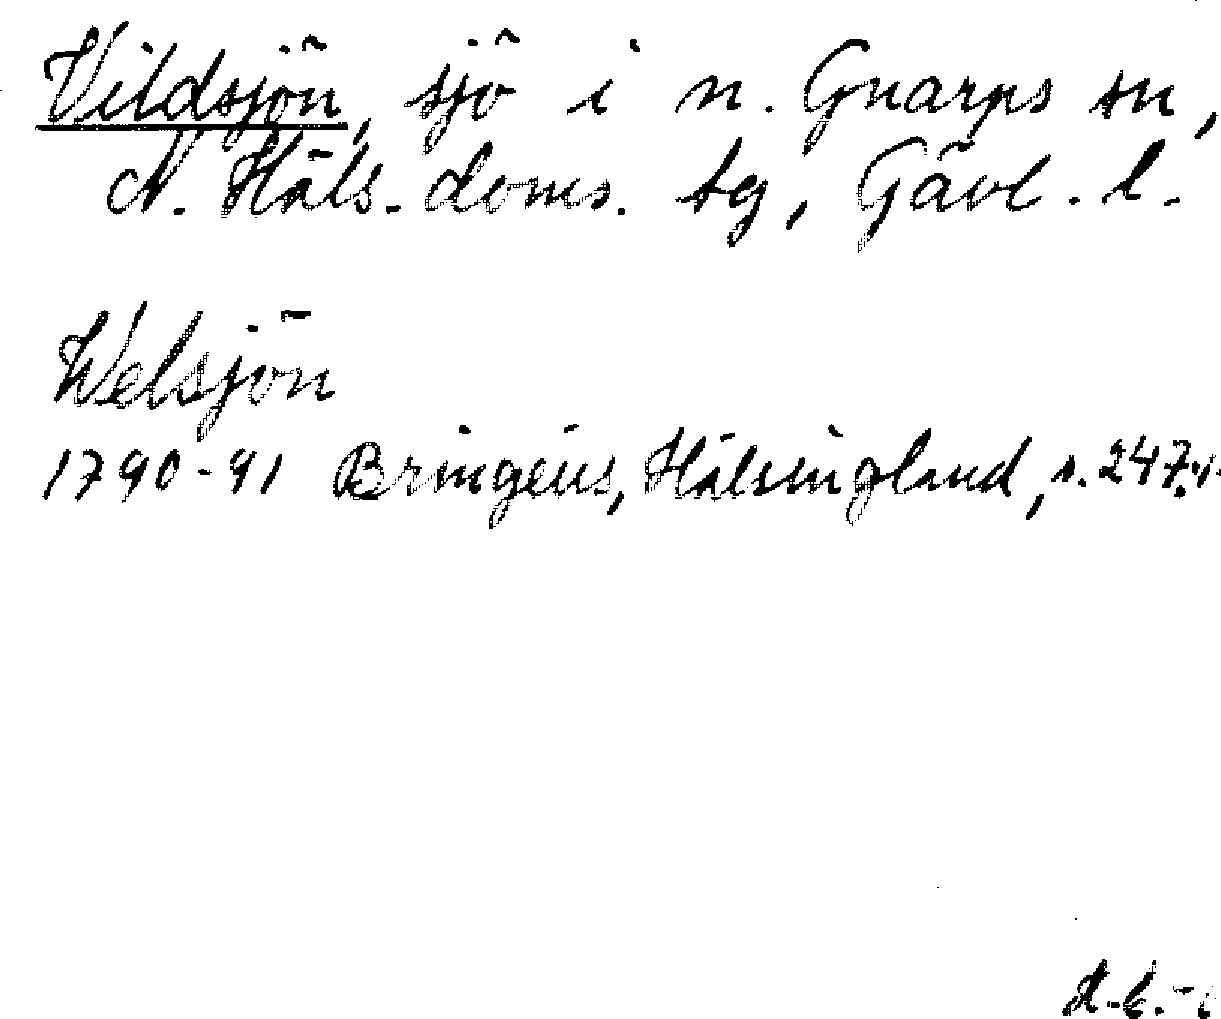 Vildsjön, sjö i n. Gnarps sn,
N. Häls. doms. tg, Gävl. l.
Welsjön
1790-91 Bringéus, Hälsingland, s. 247.